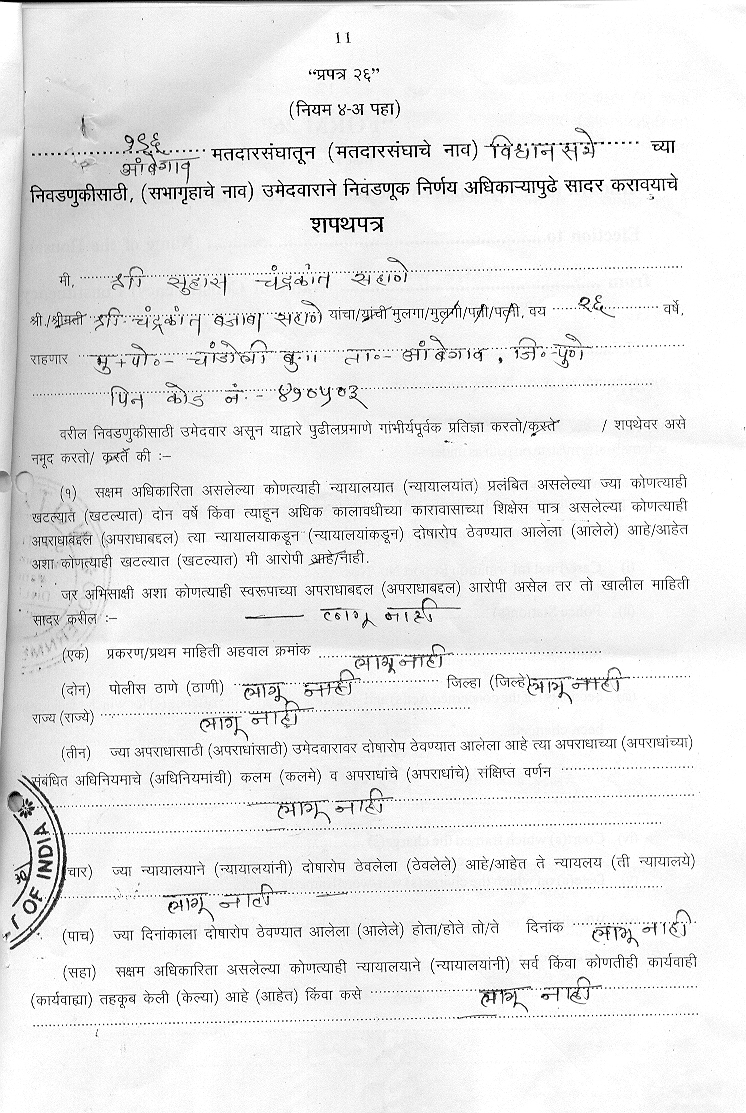 11
“प्रपत्र २६”
(नियम ४-अ पहा)
१९६ आंबेगाव मतदारसंघातून (मतदारसंघाचे नाव) विधान सभे च्या
निवडणुकीसाठी, (सभागृहाचे नाव) उमेदवाराने निवडणूक निर्णय अधिकाऱ्यापुढे सादर करावयाचे
शपथपत्र
मी, श्री सुहास चंद्रकांत सहाणे
श्री./श्रीमती श्री. चंद्रकांत बजाबा सहाणे यांचा/यांची मुलगा/मुलगी/पती/पत्नी, वय २६ वर्षे,
राहणार मु + पो ०- चांडोली बु॥ ता ०- आंबेगाव, जि ०- पुणे
पिन कोड नं :- ४१०५०३
वरील निवडणुकीसाठी उमेदवार असून याद्वारे पुढीलप्रमाणे गांभीर्यपूर्वक प्रतिज्ञा करतो/करते / शपथेवर असे
नमूद करतो/ करते की :–
(१) सक्षम अधिकारिता असलेल्या कोणत्याही न्यायालयात (न्यायालयांत) प्रलंबित असलेल्या ज्या कोणत्याही
खटल्यात (खटल्यात) दोन वर्षे किंवा त्याहून अधिक कालावधीच्या कारावासाच्या शिक्षेस पात्र असलेल्या कोणत्याही
अपराधाबद्दल (अपराधाबद्दल) त्या न्यायालयाकडून (न्यायालयांकडून) दोषारोप ठेवण्यात आलेला (आलेले) आहे/आहेत
अशा कोणत्याही खटल्यात (खटल्यात) मी आरोपी आहे/नाही.
जर अभिसाक्षी अशा कोणत्याही स्वरूपाच्या अपराधाबद्दल (अपराधाबद्दल) आरोपी असेल तर तो खालील माहिती
सादर करील :– लागू नाही
(एक) प्रकरण/प्रथम माहिती अहवाल क्रमांक लागू नाही
(दोन) पोलीस ठाणे (ठाणी) लागू नाही जिल्हा (जिल्हे) लागू नाही
राज्य (राज्ये) लागू नाही
(तीन) ज्या अपराधासाठी (अपराधांसाठी) उमेदवारावर दोषारोप ठेवण्यात आलेला आहे त्या अपराधाच्या (अपराधांच्या)
संबंधित अधिनियमाचे (अधिनियमांची) कलम (कलमे) व अपराधांचे (अपराधांचे) संक्षिप्त वर्णन
लागू नाही
चार) ज्या न्यायालयाने (न्यायालयांनी) दोषारोप ठेवलेला (ठेवलेले) आहे/आहेत ते न्यायलय (ती न्यायालये)
लागू नाही
(पाच) ज्या दिनांकाला दोषारोप ठेवण्यात आलेला (आलेले) होता/होते तो/ते दिनांक लागू नाही
(सहा) सक्षम अधिकारिता असलेल्या कोणत्याही न्यायालयाने (न्यायालयांनी) सर्व किंवा कोणतीही कार्यवाही
(कार्यवाह्या) तहकूब केली (केल्या) आहे (आहेत) किंवा कसे लागू नाही
OF INDIA